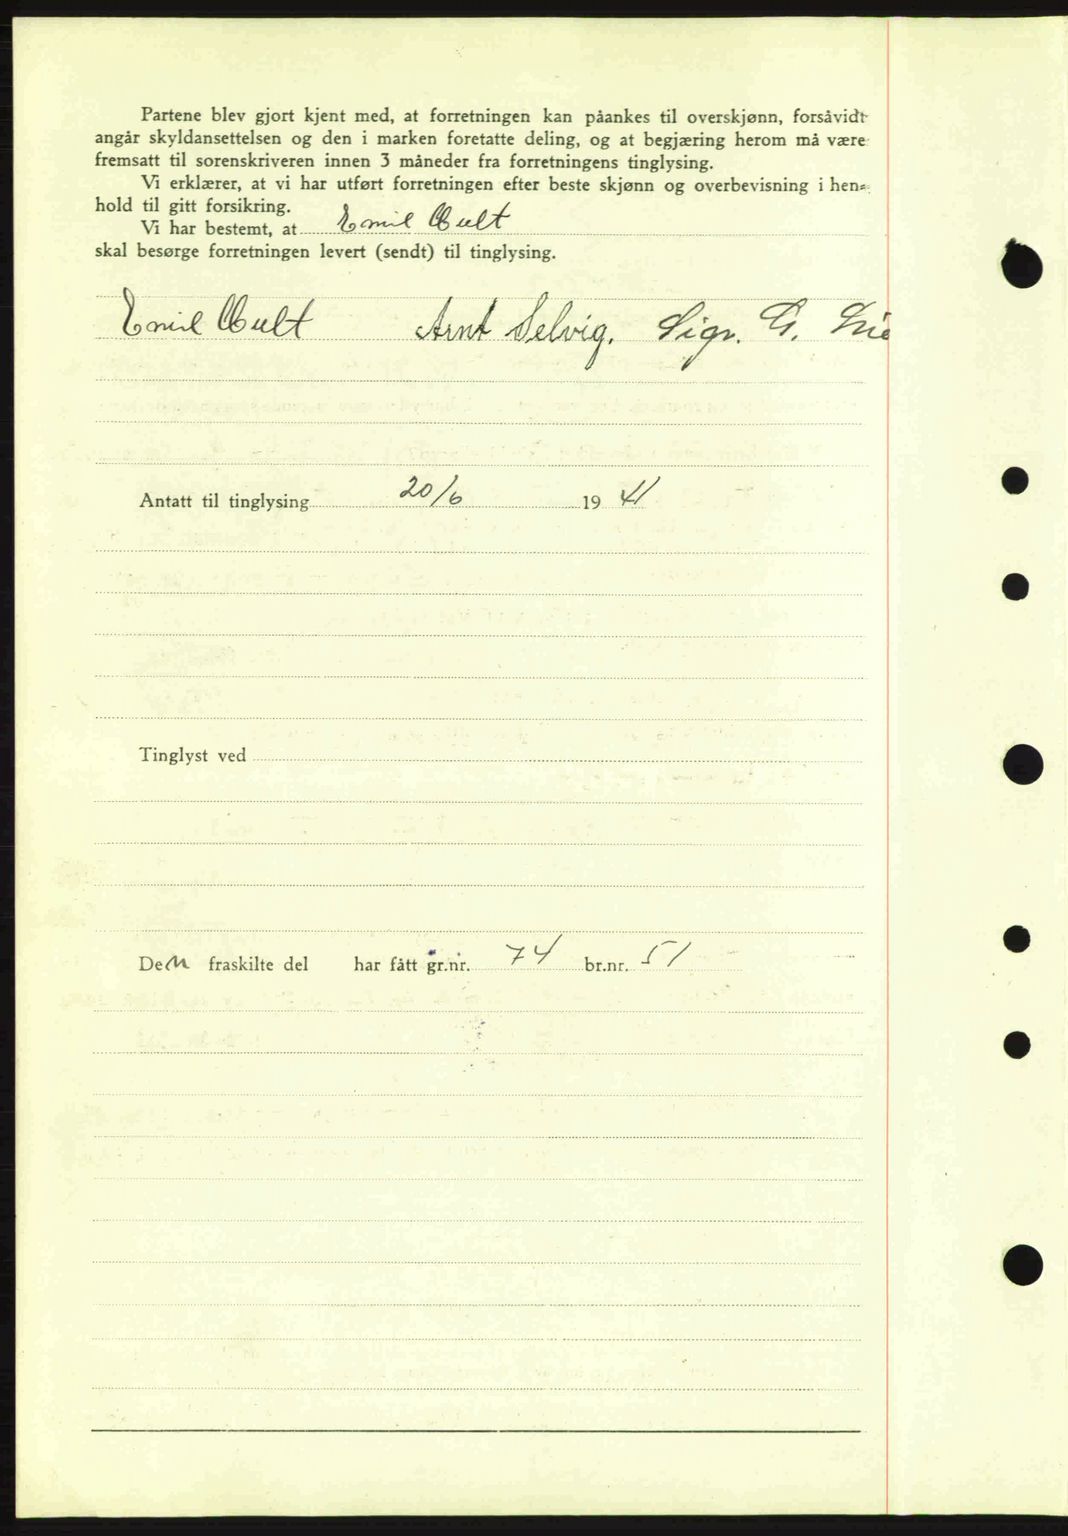 Partene blev gjort kjent med, at forretningen kan påankes til overskjønn, forsåvidt
angår skyldansettelsen og den i marken foretatte deling, og at begjæring herom må være
fremsatt til sorenskriveren innen 3 måneder fra forretningens tinglysing.
Vi erklærer, at vi har utført forretningen efter beste skjønn og overbevisning i hen-
hold til gitt forsikring.
Vi har bestemt, at Emil Hult
skal besørge forretningen levert (sendt) til tinglysing.
Emil Hult Arnt Selvig. Sigv. G.
Antatt til tinglysing 20/6 19 41
Tinglyst ved
Den fraskilte del har fått gr.nr. 74 br.nr. 51